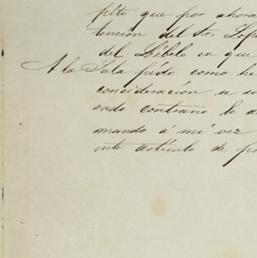 pito que por ahora
tencion del Sr. Lop
del Libelo en que
A la Sala pido como he
consideración u
sado contrario lo a
mando á mi vez
ente artículo de p